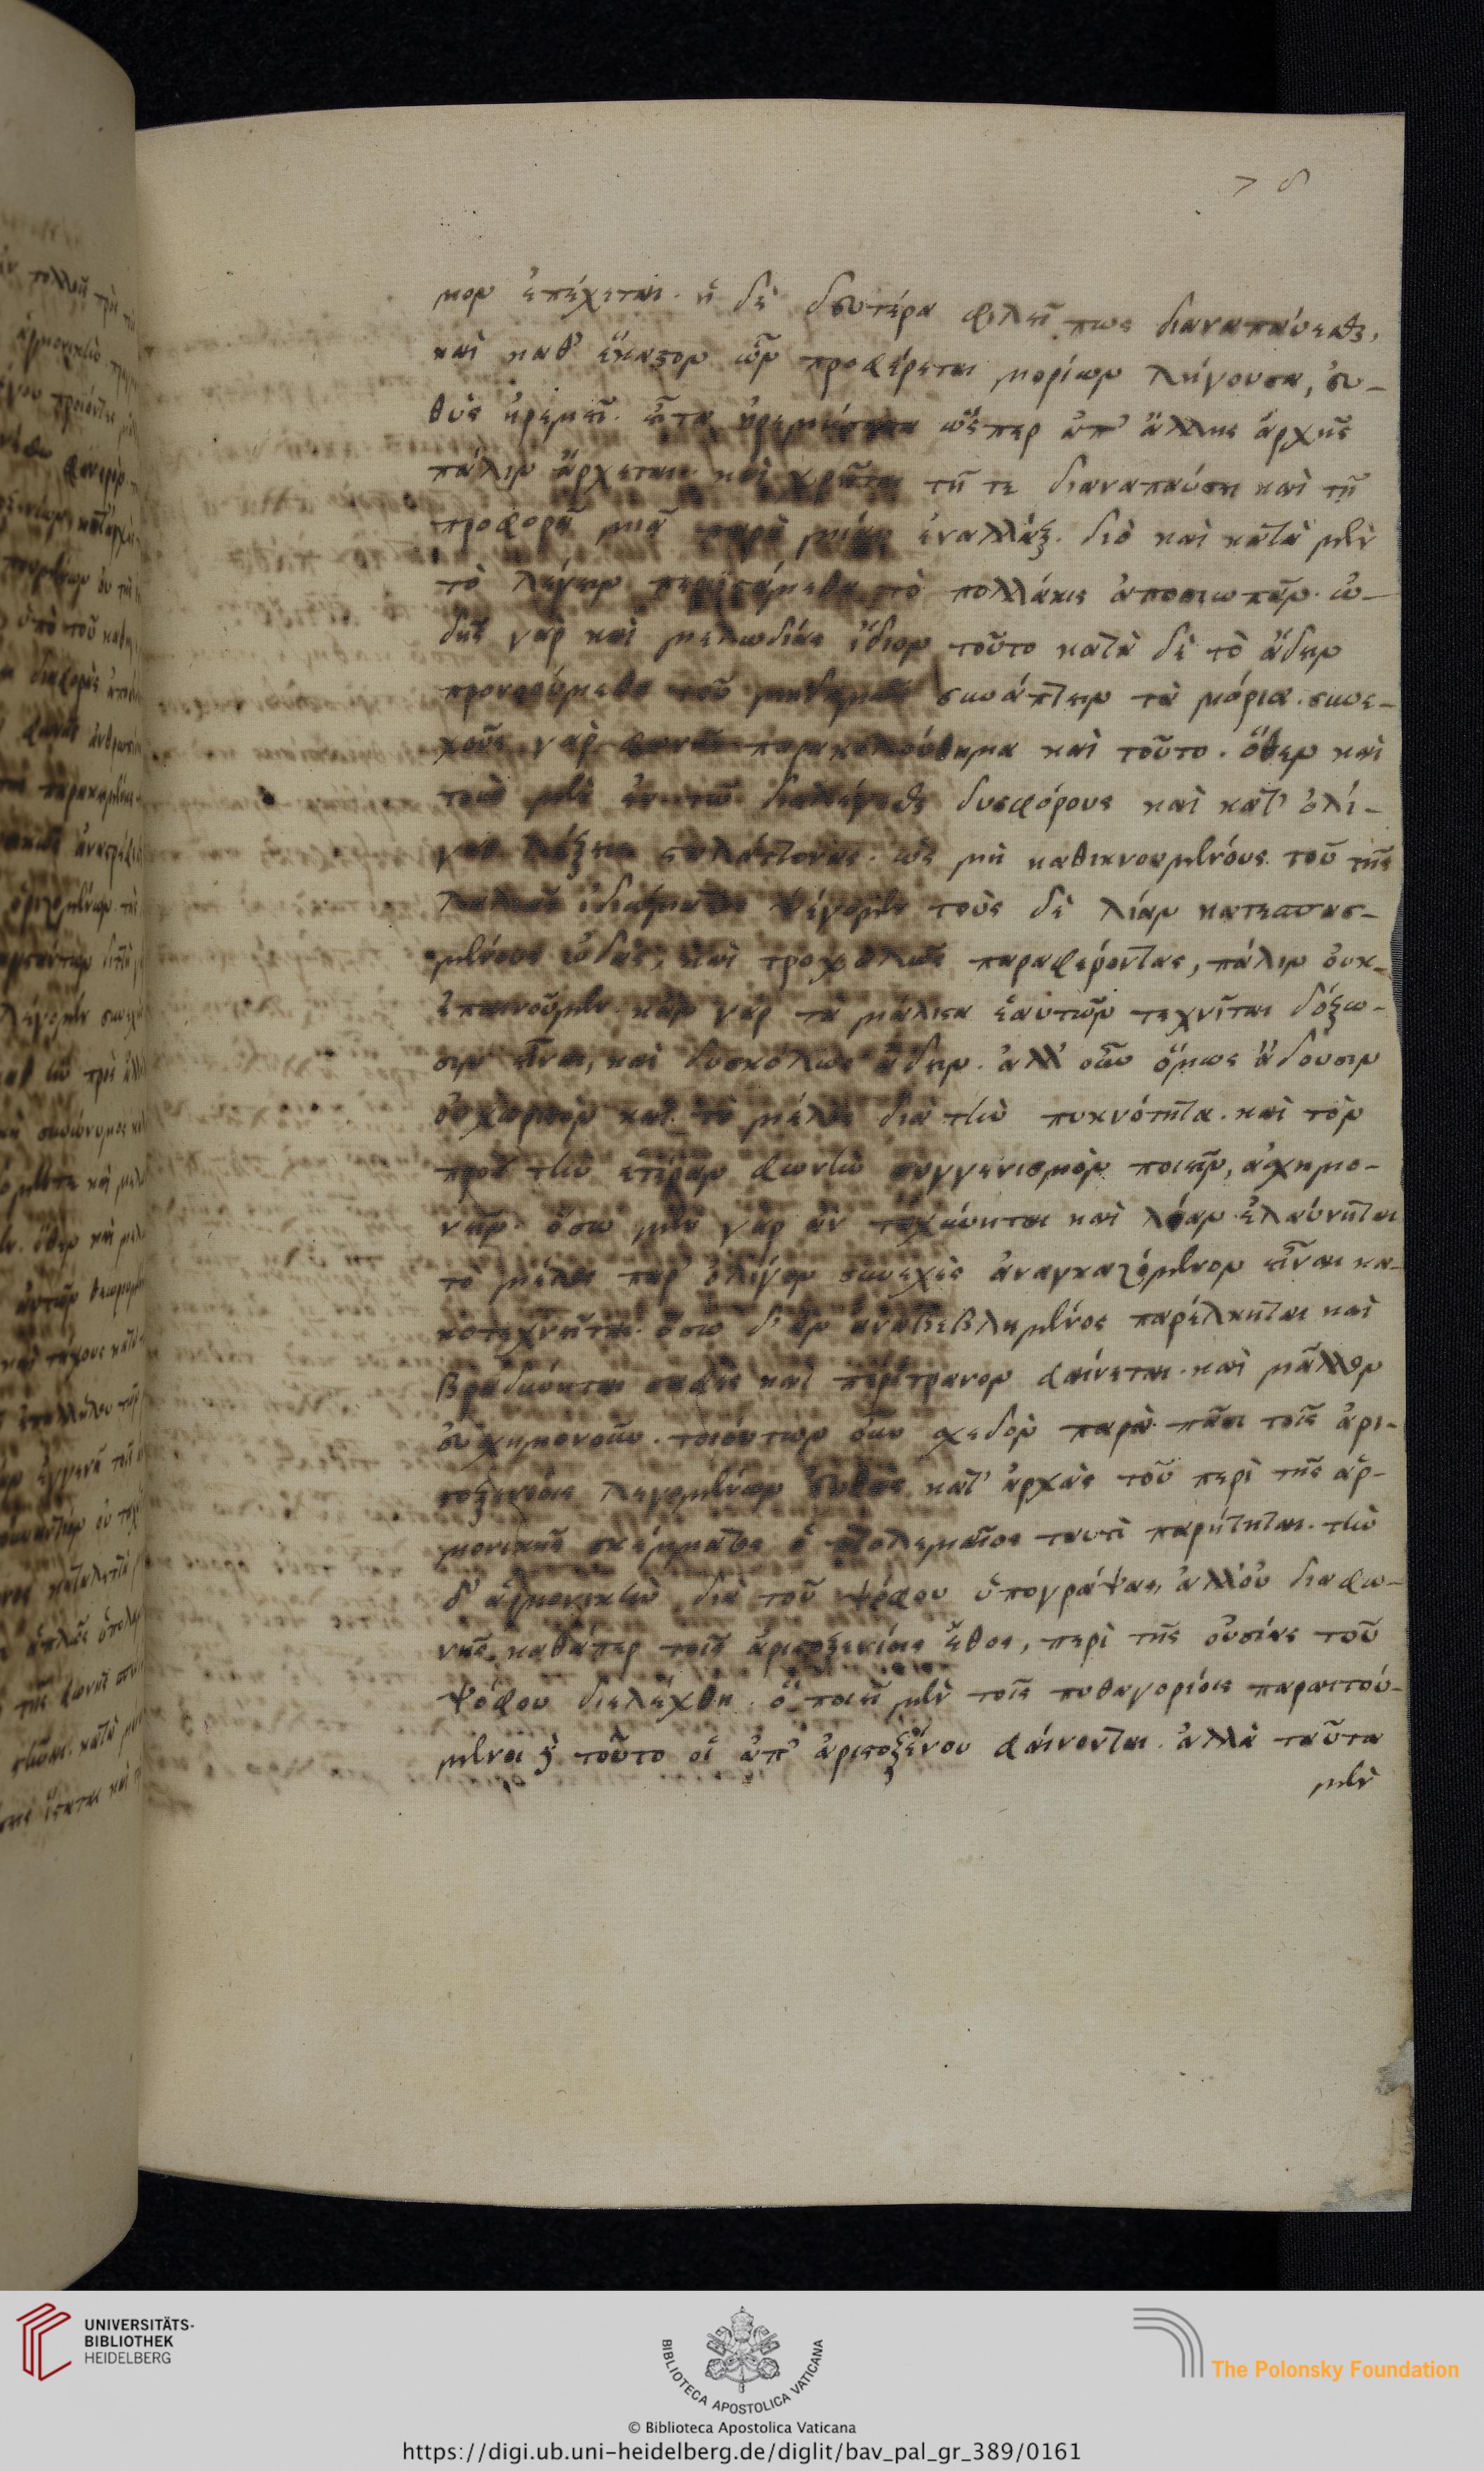 > δ
μον ἐπέχεται. ἡ δὲ δευτέρα φιλεῖ πως διαναπαύεσθαι,
καὶ καθ' ἕκαστον ὧν προφέρεται μορίων λήγουσα, εὐ-
θὺς ἠρεμεῖ. εἶτα ἠρεμήσασα ὥσπερ ἀπ' ἄλλης ἀρχῆς
πάλιν ἄρχεται. καὶ χρῆται τῇ τε διαναπαύσει καὶ τῇ
προφορᾷ μιᾷ παρὰ μίαν ἐναλλάξ. διὸ καὶ κατὰ μὲν
τὸ λέγειν περιιστάμεθα τὸ πολλάκις ἀποσιωπᾶν. ὠ-
δῆς γὰρ καὶ μελωδίας ἴδιον τοῦτο κατὰ δὲ τὸ ἄδειν
προνοούμεθα τοῦ μηδαμῶς συνάπτειν τὰ μόρια. συνε-
χοῦς γὰρ φωνῆς παρακολούθημα καὶ τοῦτο. ὅθεν καὶ
τοὺς μὲν ἐν τῷ διαλέγεσθαι δυσφόρους καὶ κατ' ὀλί-
γας λέξεις ὡς μὴ καθικνουμένους τοῦ τῆς
ἰδιώματος ψέγομεν τοὺς δὲ λίαν κατεσπασ-
μένους ὠδὰς, καὶ παραφέροντας, πάλιν οὐκ
ἐπαινοῦμεν. κἂν γὰρ τὰ μάλιστα ἑαυτῶν τεχνῖται δόξω-
σιν εἶναι, καὶ δυσκόλως ἄδειν. ἀλλ' οὖν ὅμως ἄδουσιν
κατὰ τὸ μέλος διὰ τὴν πυκνότητα. καὶ τὸν
πρὸς τὴν ἑτέραν φωνὴν συγγενισμὸν ποιεῖν, ἀσχημο-
νεῖν. ὅσω μὲν γὰρ ἂν ταχύνηται καὶ λίαν ἐλαύνηται
τὸ μέλος παρ' ὀλίγον συνεχὲς ἀναγκαζόμενον εἶναι κα-
κοτεχνεῖται. ὅσω δ' ἂν ἀναβεβλημένος παρέλκηται καὶ
βραδύνηται σαφὲς καὶ περίτρανον φαίνεται. καὶ μᾶλλον
εὐσχημονοῦν. τοιούτων οὖν σχεδὸν παρὰ πᾶσι τοῖς ἀρι-
στοξενείοις λεγομένων εὐθὺς κατ' ἀρχὰς τοῦ περὶ τῆς ἁρ-
μονικῆς σκέμματος ὁ πτολεμαῖος ταυτὶ παρήτηται. τὴν
δ' ἁρμονικὴν διὰ τοῦ ψόφου ὑπογράψας, ἀλλ' οὐ διὰ φω-
νῆς καθάπερ τοῖς ἀριστοξενείοις ἔθος, περὶ τῆς οὐσίας τοῦ
ψόφου διελέχθη. ὃ ποιεῖ μὲν τοῖς πυθαγορίοις παραιτού-
μενοι τοῦτο οἱ ἀπ' ἀριστοξένου φαίνονται. ἀλλὰ ταῦτα
μὲν
UNIVERSITÄTS-
BIBLIOTHEK
HEIDELBERG
BIBLIOTECA APOSTOLICA VATICANA
The Polonsky Foundation
© Biblioteca Apostolica Vaticana
https://digi.ub.uni-heidelberg.de/diglit/bav_pal_gr_389/0161